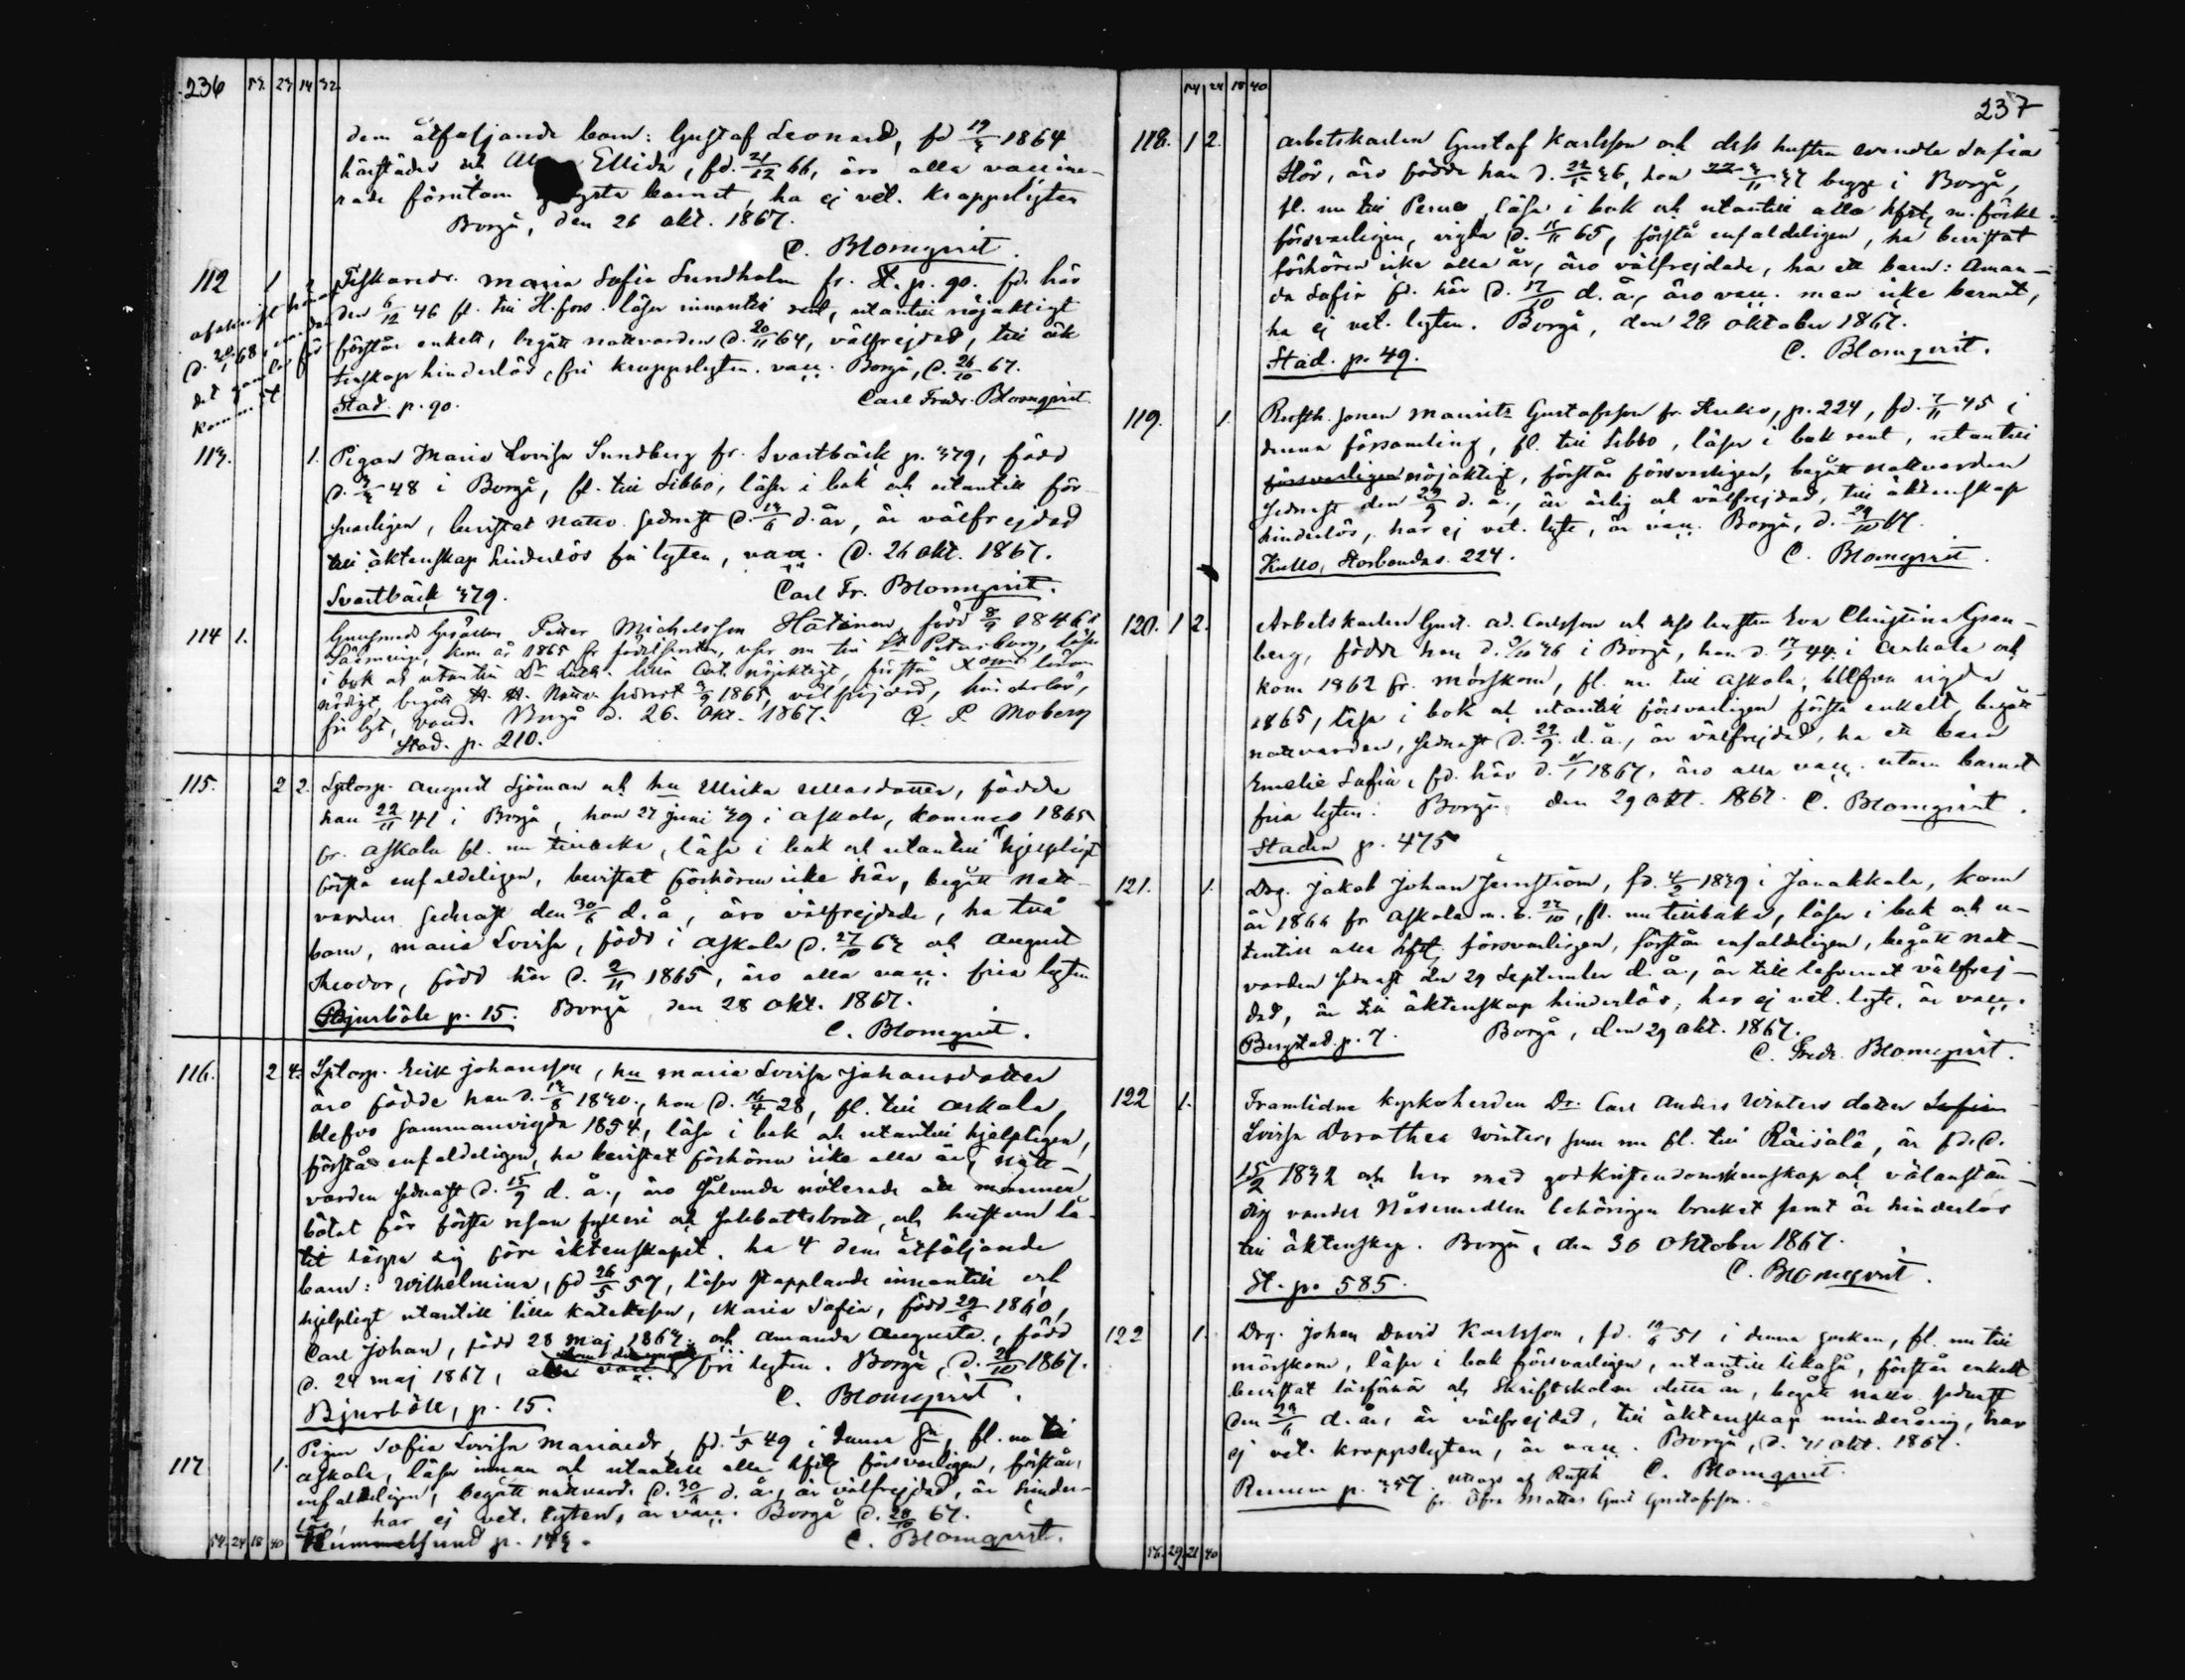 236 54. 23 14 32
dem åtföljande barn: Gustaf Leonard, fd 19 1864
härstädes och Ellida, fd. 21/12 66, äro alla vaccine-
rade förutom yngsta barnet, ha ej vet. kroppslyten
Borgå, den 26 okt. 1867.
C. Blomqvist.
112 1 2 Fiskaredr. Maria Sofia Sundholm fr. St. p. 90. fd. här
den 6/12 46 fl. till H.fors. läser innantill rent, utantill nöjaktigt
förstår enkelt, begått nattvarden d. 20/11 64, välfrejdad, till äk
tenskap hinderlös, fri kroppslyten. vacc. Borgå, d. 26/10 67.
Stad. p. 90. Carl Fredr. Blomqvist.
afskrift häraf
d. 20 68, det gamla
113. 1. Pigan Maria Lovisa Sundberg fr. Svartbäck p. 379, född
d. 48 i Borgå, fl. till Sibbo, läser i bok och utantill för-
svarligen, bevistat nattv. sednast d. d. år, är välfrejdad
till äktenskap hinderlös fri lyten, vacc. d. 26 okt. 1867.
Svartbäck 379. Carl Fr. Blomqvist.
114 1. Petter Michelsson Hatinen, född 8/9 1846 i
Säämingi, kom år 1865 fr. födelseorten, nu till St Petersburg, läser
i bok och utantill Dr Luth. lilla Cat. nöjaktigt, förstår
nödigt, begått H. H. Nattv. sednast 1865, välfrejdad, hinderlös,
fri lyt, Borgå d. 26. Okt. 1867. C. P. Moberg
Stad. p. 210.
115. 2 2. Sytorp. August Sjöman och hu Ulrika dotter, födde
han 22/11 41 i Borgå, hon 27 juni 39 i Askola, kommo 1865
fr. Askola fl. nu tillbaka, läsa i bok och utantill hjelpligt
förstå enfaldeligen, bevistat förhören icke här, begått natt-
varden sednast den 30/6 d. å, äro välfrejdade, ha två
barn, Maria Lovisa, född i Askola d. 27/10 63 och August
Theodor, född här d. 2/11 1865, äro alla vacc. fria lyten
Bjurböle p. 15. Borgå den 28 okt. 1867.
C. Blomqvist.
116. 2 4. Sytorp. Erik Johansson, hu Maria Lovisa Johansdotter
äro födde han d. 13/8 1830., hon d. 16/4 28, fl. till Askola,
blefvo sammanvigda 1854, läsa i bok och utantill hjelpligen,
förstå enfaldeligen, ha bevistat förhören icke alla år, natt-
varden sednast d. 15/9 d. å., äro sålunda noterade att mannen
bötat för första resan fylleri och sabbatsbrott, och hustrun lå-
tit lägra sig före äktenskapet. ha 4 dem åtföljande
barn: Wilhelmina, fd 26/5 57, läser stapplande innantill och
hjelpligt utantill lilla katekesen, Maria Sofia, född 29 1860,
Carl Johan, född 28 maj 1863 och Amanda Augusta, född
d. 24 maj 1867, alla vacc. fri lyten. Borgå, d. 28/10 1867.
Bjurböle, p. 15. C. Blomqvist.
117 1. Pigan Sofia Lovisa Mariaedr, fd. 1/5 49 i denna, fl. nu till
Askola, läser innan och utantill alla försvarligen, förstår
enfaldeligen, begått nattvard. d. 30/6 d. å., är välfrejdad, är hinder-
lös, har ej vet. lyten, är vacc. Borgå d. 28/10 67.
54. 24 18 40 Hummelsund p. 143. C. Blomqvist.
54 24 18 40
237
118. 1 2. Arbetskarlen Gustaf Karlsson och dess hustru Wendla Sofia
Hör, äro födde han d. 46, hon begge i Borgå,
fl. nu till Perno, läsa i bok och utantill alla m. förkl.
försvarligen, vigda d. 65, förstå enfaldeligen, ha bevistat
förhören icke alla år, äro välfrejdade, ha ett barn: Aman-
da Sofia fd. här d. 17/10 d. å., äro vacc. men icke barnet,
ha ej vet. lyten. Borgå, den 28 oktober 1867.
Stad. p. 49. C. Blomqvist.
119. 1. Rusth. sonen Mauritz Gustafsson fr. Kullo, p. 224, fd. 7/11 45 i
denna församling, fl. till Sibbo, läser i bok rent, utantill
försvarligen nöjaktigt, förstår försvarligen, begått nattvarden
sednast den 29/9 d. å., är ärlig och välfrejdad, till äktenskap
hinderlös, har ej vet. lyte, är vacc. Borgå, d. 29/10 67.
Kullo, Storbondas. 224. C. Blomqvist.
120. 1 2. Arbetskarlen Gust. Ad. Carlsson och dess hustru Eva Christina Gran-
berg, födde han d. 36 i Borgå, hon d. 44. i Askola och
kom 1862 fr. Mörskom, fl. nu till Askola, blefvo vigda
1865, läsa i bok och utantill försvarligen förstå enkelt, begått
nattvarden, sednast d. 29/9. d. å., är välfrejdad, ha ett barn
Emelie Sofia, fd. här d. 1867, äro alla vacc. utom barnet
fria lyten. Borgå den 29 okt. 1867. C. Blomqvist.
Staden p. 475
121. 1. Drg. Jakob Johan Jernström, fd. 4/2 1839 i Janakkala, kom
år 1866 fr. Askola m. b. 22/10, fl. nu tillbaka, läser i bok och u-
tantill alla försvarligen, förstår enfaldeligen, begått natt-
varden sednast den 29 September d. å., är till lefvernet välfrej-
dad, är till äktenskap hinderlös, har ej vet. lyte, är vacc.
Bergstad. p. 7. Borgå, den 29 okt. 1867.
C. Fredr. Blomqvist.
122 1. Framlidne kyrkoherden Dr. Carl Anders Winters dotter Sofia
Lovisa Dorothea Winter, som nu fl. till Räisälä, är fd. d.
15/2 1832 och har med god kristendomskunskap och välanstän-
dig vandel Nådemedlen behörigen brukat samt är hinderlös
till äktenskap. Borgå, den 30 Oktober 1867.
St. p. 585. C. Blomqvist.
122 1. Drg. Johan David Karlsson, fd. 19/6 51 i denna socken, fl. nu till
Mörskom, läser i bok försvarligen, utantill likaså, förstår enkelt
bevistat läsförhör och Skriftskolan detta år, begått nattv. sednast
den d. år, är välfrejdad, till äktenskap minderårig, har
ej vet. kroppslyten, är vacc. Borgå, d. 31 okt. 1867.
p. 357. uttogs af Rusth. C. Blomqvist.
fr. Öfra Mattas Gustafsson.
56. 29 21 40